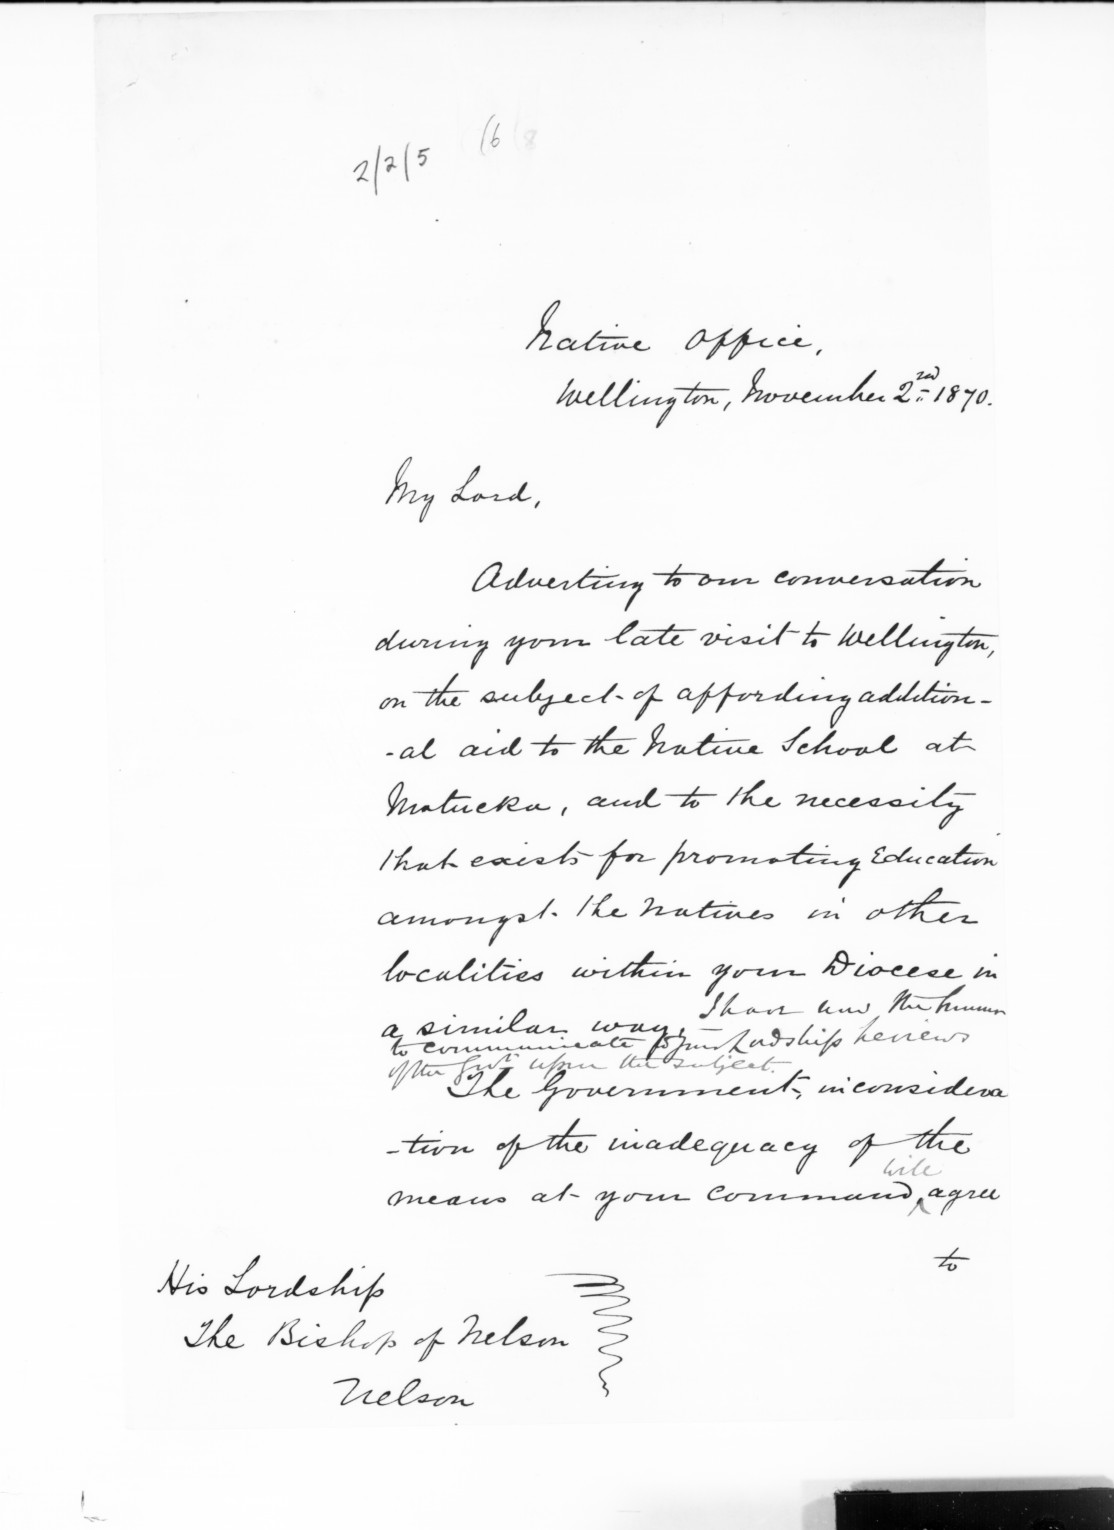 2/2/5 (6
Native Office,
Wellington, November 2nd 1870.
My Lord,
Adverting to our conversation
during your late visit to Wellington,
on the subject of affording addition-
-al aid to the Native School at
Motueka, and to the necessity
that exists for promoting Education
amongst the Natives in other
localities within your Diocese in
a similar way, I have now the honor
to communicate to your Lordship the views
of the Govt upon the subject.
The Government, in considera
-tion of the inadequacy of the
will
means at your command, agree
to
His Lordship
The Bishop of Nelson
Nelson